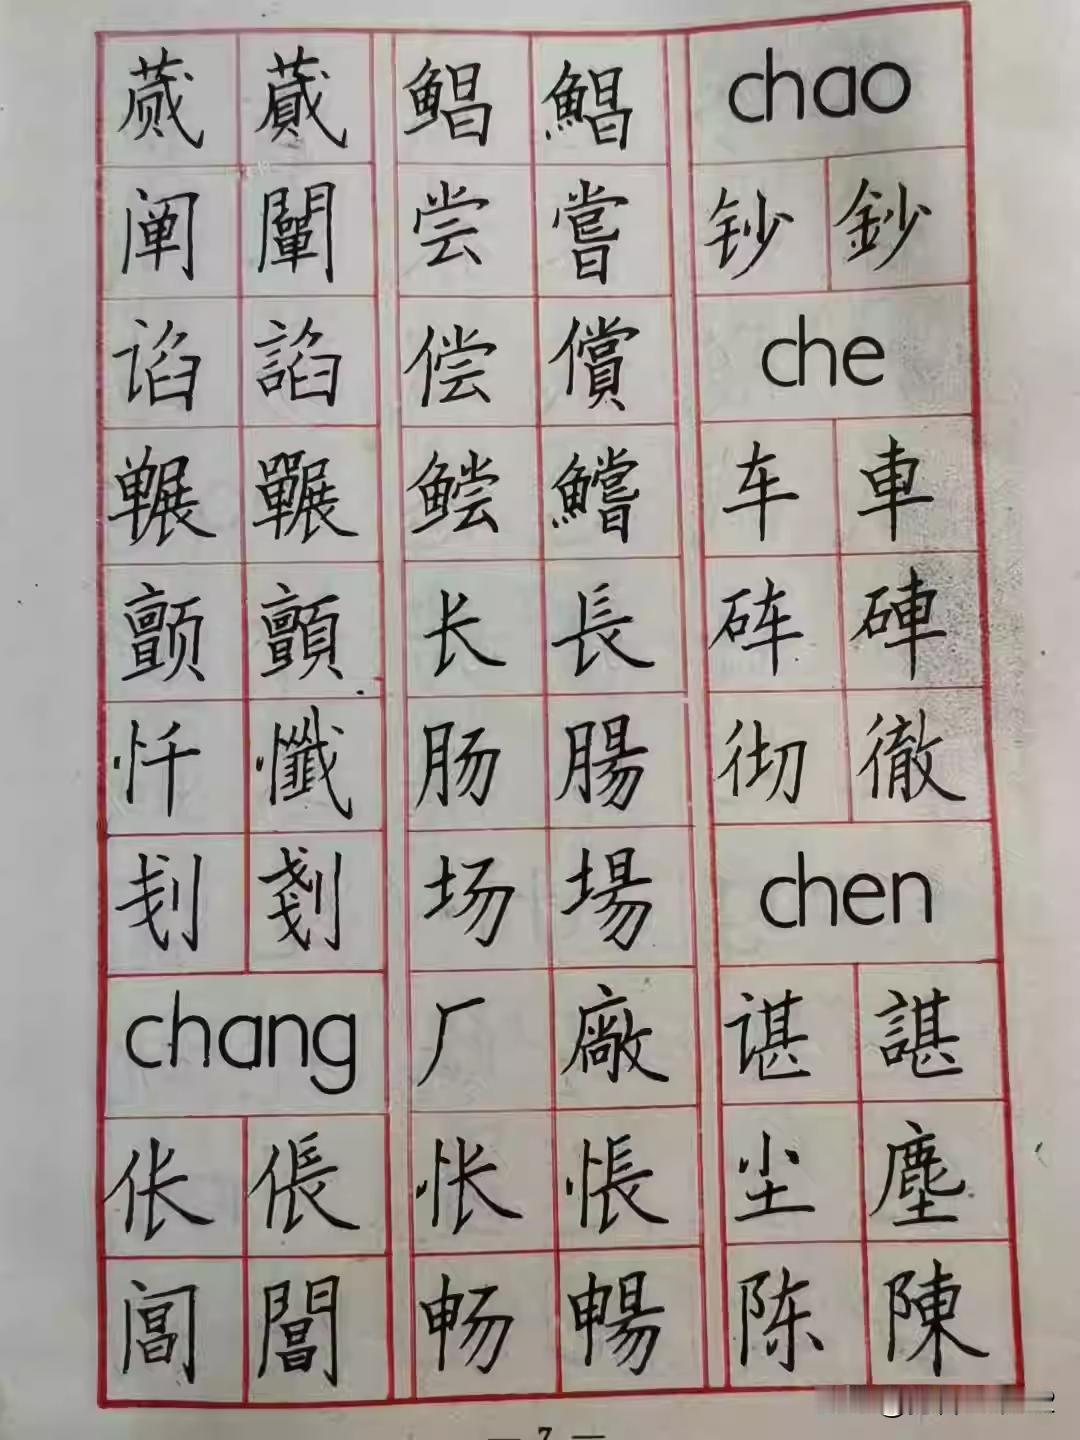 蒇 蕆
阐 闡
谄 諂
冁 囅
颤 顫
忏 懺
刬 剗
chang
伥 倀
阊 閶
鲳 鯧
尝 嘗
偿 償
鲿 鱨
长 長
肠 腸
场 場
厂 廠
怅 悵
畅 暢
chao
钞 鈔
che
车 車
砗 硨
彻 徹
chen
谌 諶
尘 塵
陈 陳
— 7 —